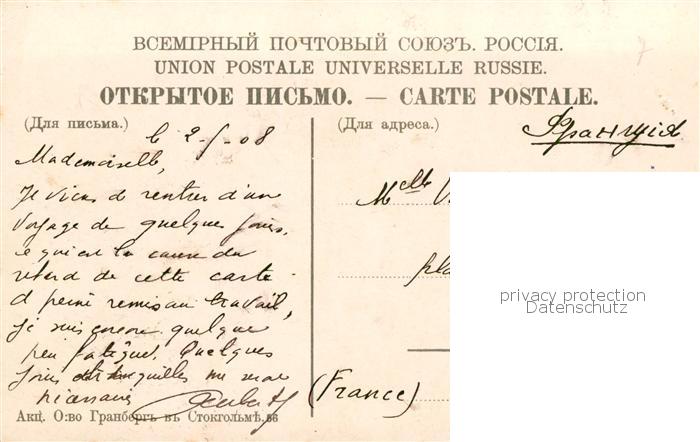 ВСЕМІРНЫЙ ПОЧТОВЫЙ СОЮЗЪ. РОССІЯ.
UNION POSTALE UNIVERSELLE RUSSIE.
ОТКРЫТОЕ ПИСЬМО. — CARTE POSTALE.
(Для письма.)
le 2-5-08
Mademoiselle,
Je viens de rentrer d'un
voyage de quelques jours,
ce qui est la cause du
retard de cette carte.
à peine remis au travail,
je suis encore quelque
peu fatigué. Quelques
jours me
Акц. О:во Гранбергъ въ Стокгольмѣ.
(Для адреса.)
Франція
Melle
pla
(France)
privacy protection
Datenschutz